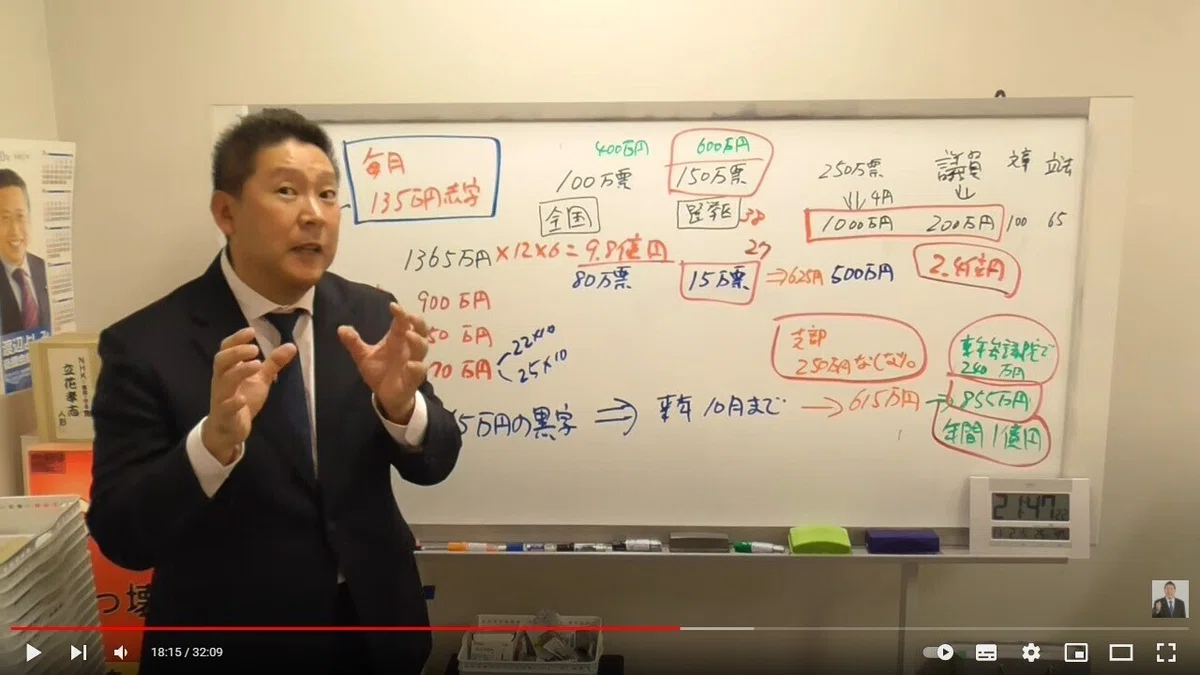 毎月
135万円赤字
400万円
100万票
全国
600万円
150万票
選挙区
38
27
250万票
↓↓ 4円
1000万円
議員
↓
200万円
文章
100
立法
65
1365万円×12×6=9.8億円
80万票
15万票
⇒625円 500万円
2.4億円
900万円
50万円
70万円
22×10
25×10
支部
250万円なしなら。
5万円の黒字 ⇒ 来年10月まで → 615万円 →
来年参議院で
240万円
855万円
年間1億円
21:47
NHK
立花孝志
人形
っ壊
18:15 / 32:09